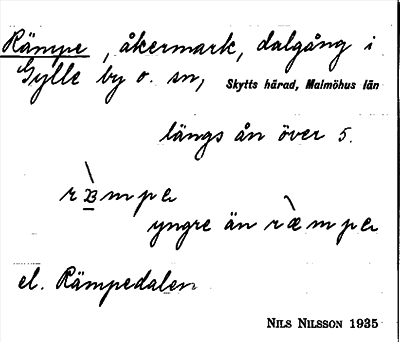 Rämpe, åkermark, dalgång i
Gylle by o. sn, Skytts härad, Malmöhus län
längs ån över 5.
el. Rämpedalen
yngre än
NILS NILSSON 1935